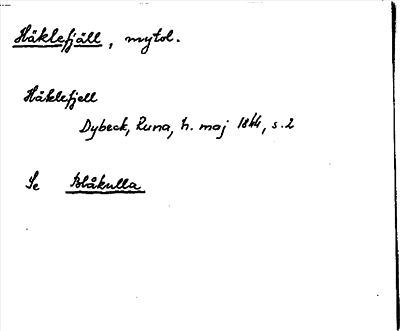 Häklefjäll, mytol.
Håklefjell
Dybeck, Runa, h. maj 1844, s. 2
Se Blåkulla